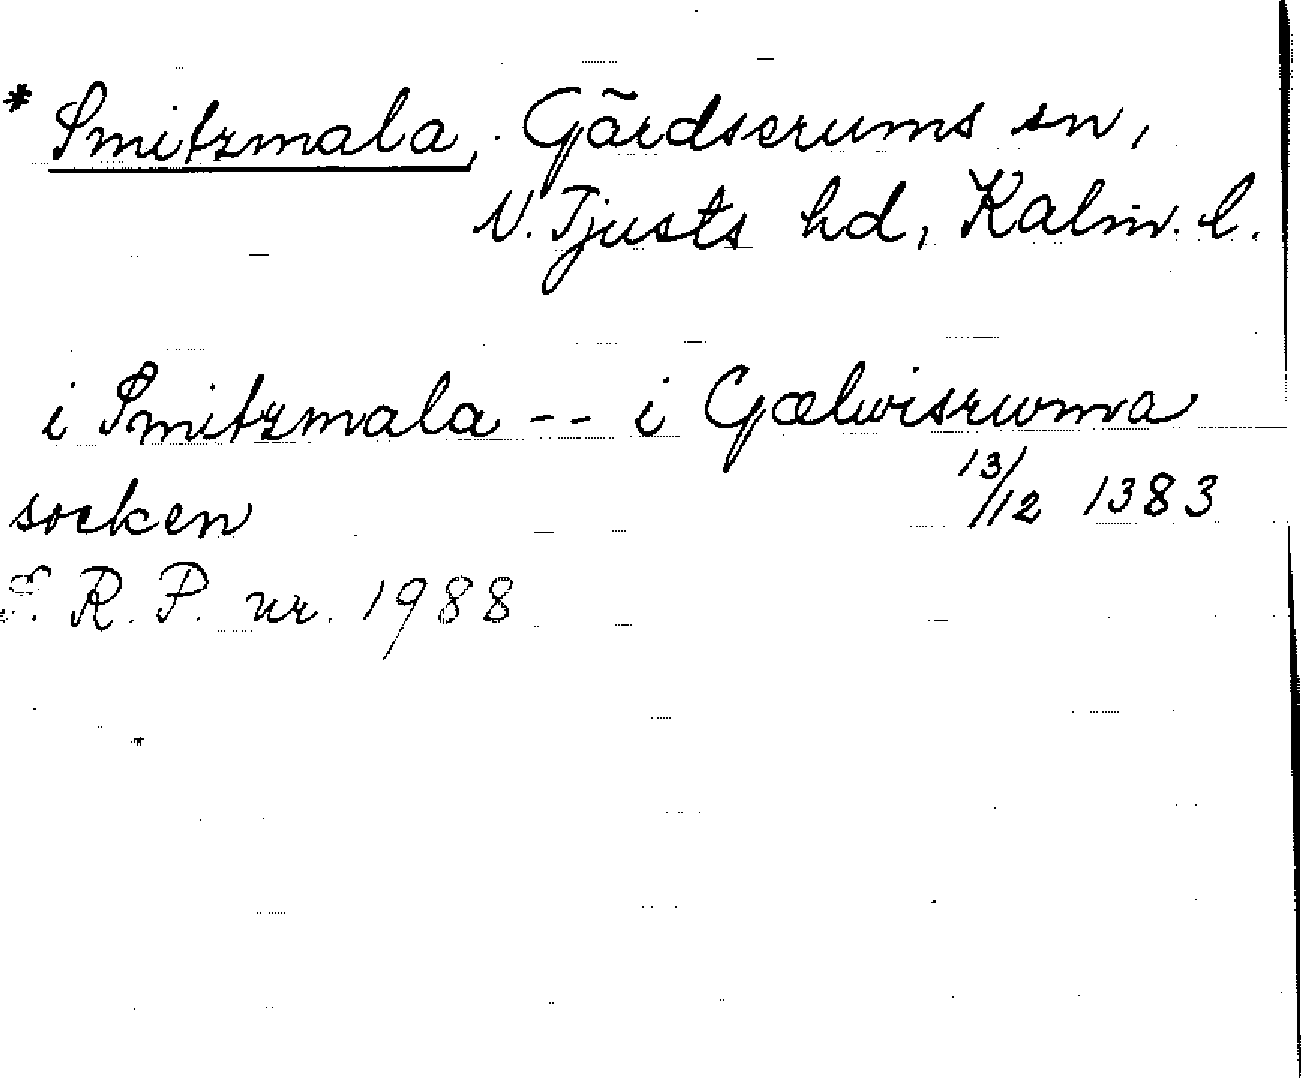 * Smitzmala, Gärdserums sn,
N. Tjusts hd, Kalm. l.
i Smitzmala -- i Gælwisrwma
socken 13/12 1383
S. R. P. nr. 1988